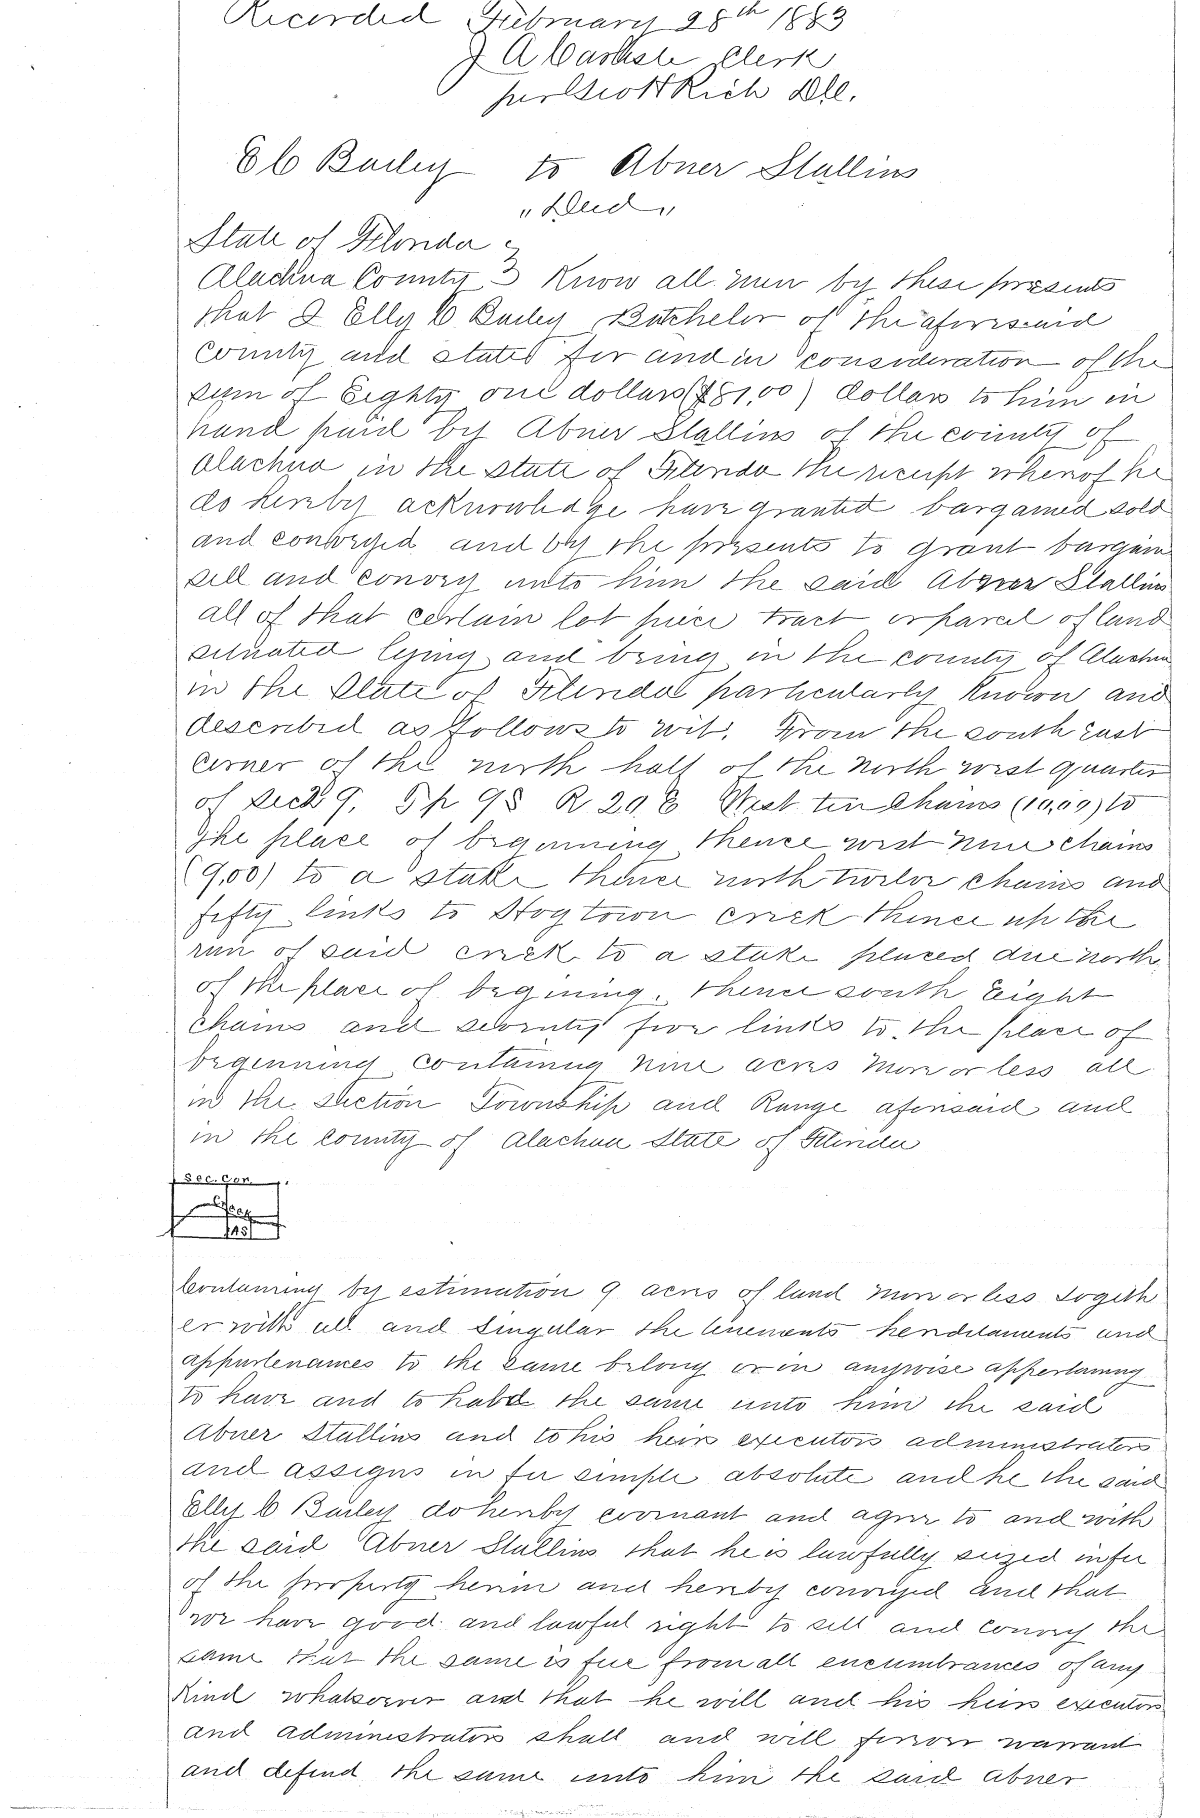 Recorded February 28th 1883
J A Carlisle Clerk
per Scott Rich D.C.
E C Bailey to Abner Stallins
"Deed"
State of Florida
Alachua County Know all men by these presents
that I Elly C Bailey Batchelor of the aforesaid
county and stated for and in consideration of the
sum of Eighty one dollars ($81.00) dollars to him in
hand paid by Abner Stallins of the county of
Alachua in the state of Florida the receipt whereof he
do hereby acknowledge have granted bargained sold
and conveyed and by the presents to grant bargain
sell and convey unto him the said Abner Stallins
all of that certain lot piece tract or parcel of land
situated lying and being in the county of Alachua
in the State of Florida particularly known and
described as follows to wit. From the south east
corner of the north half of the North west quarter
of Sect 9. Tp 9S R 20 E West ten chains (10,00) to
the place of beginning thence west nine chains
(9,00) to a stake thence north twelve chains and
fifty links to Hogtown creek thence up the
run of said creek to a stake placed due north
of the place of begining. thence south Eight
chains and seventy five links to the place of
beginning containing nine acres more or less all
in the section Township and Range aforesaid and
in the county of Alachua State of Florida
Sec. Cor.
Containing by estimation 9 acres of land more or less togeth
er with all and singular the tenements herditaments and
appurtenances to the same belong or in anywise appertaining
to have and to hold the same unto him the said
Abner Stallins and to his heirs executors administrators
and assigns in fee simple absolute and he the said
Elly C Bailey do hereby covenant and agree to and with
the said Abner Stallins that he is lawfully seized in fee
of the property herein and hereby conveyed and that
we have good and lawful right to sell and convey the
same that the same is free from all encumbrances of any
kind whatsoever and that he will and his heirs executors
and administrators shall and will forever warrant
and defend the same unto him the said Abner